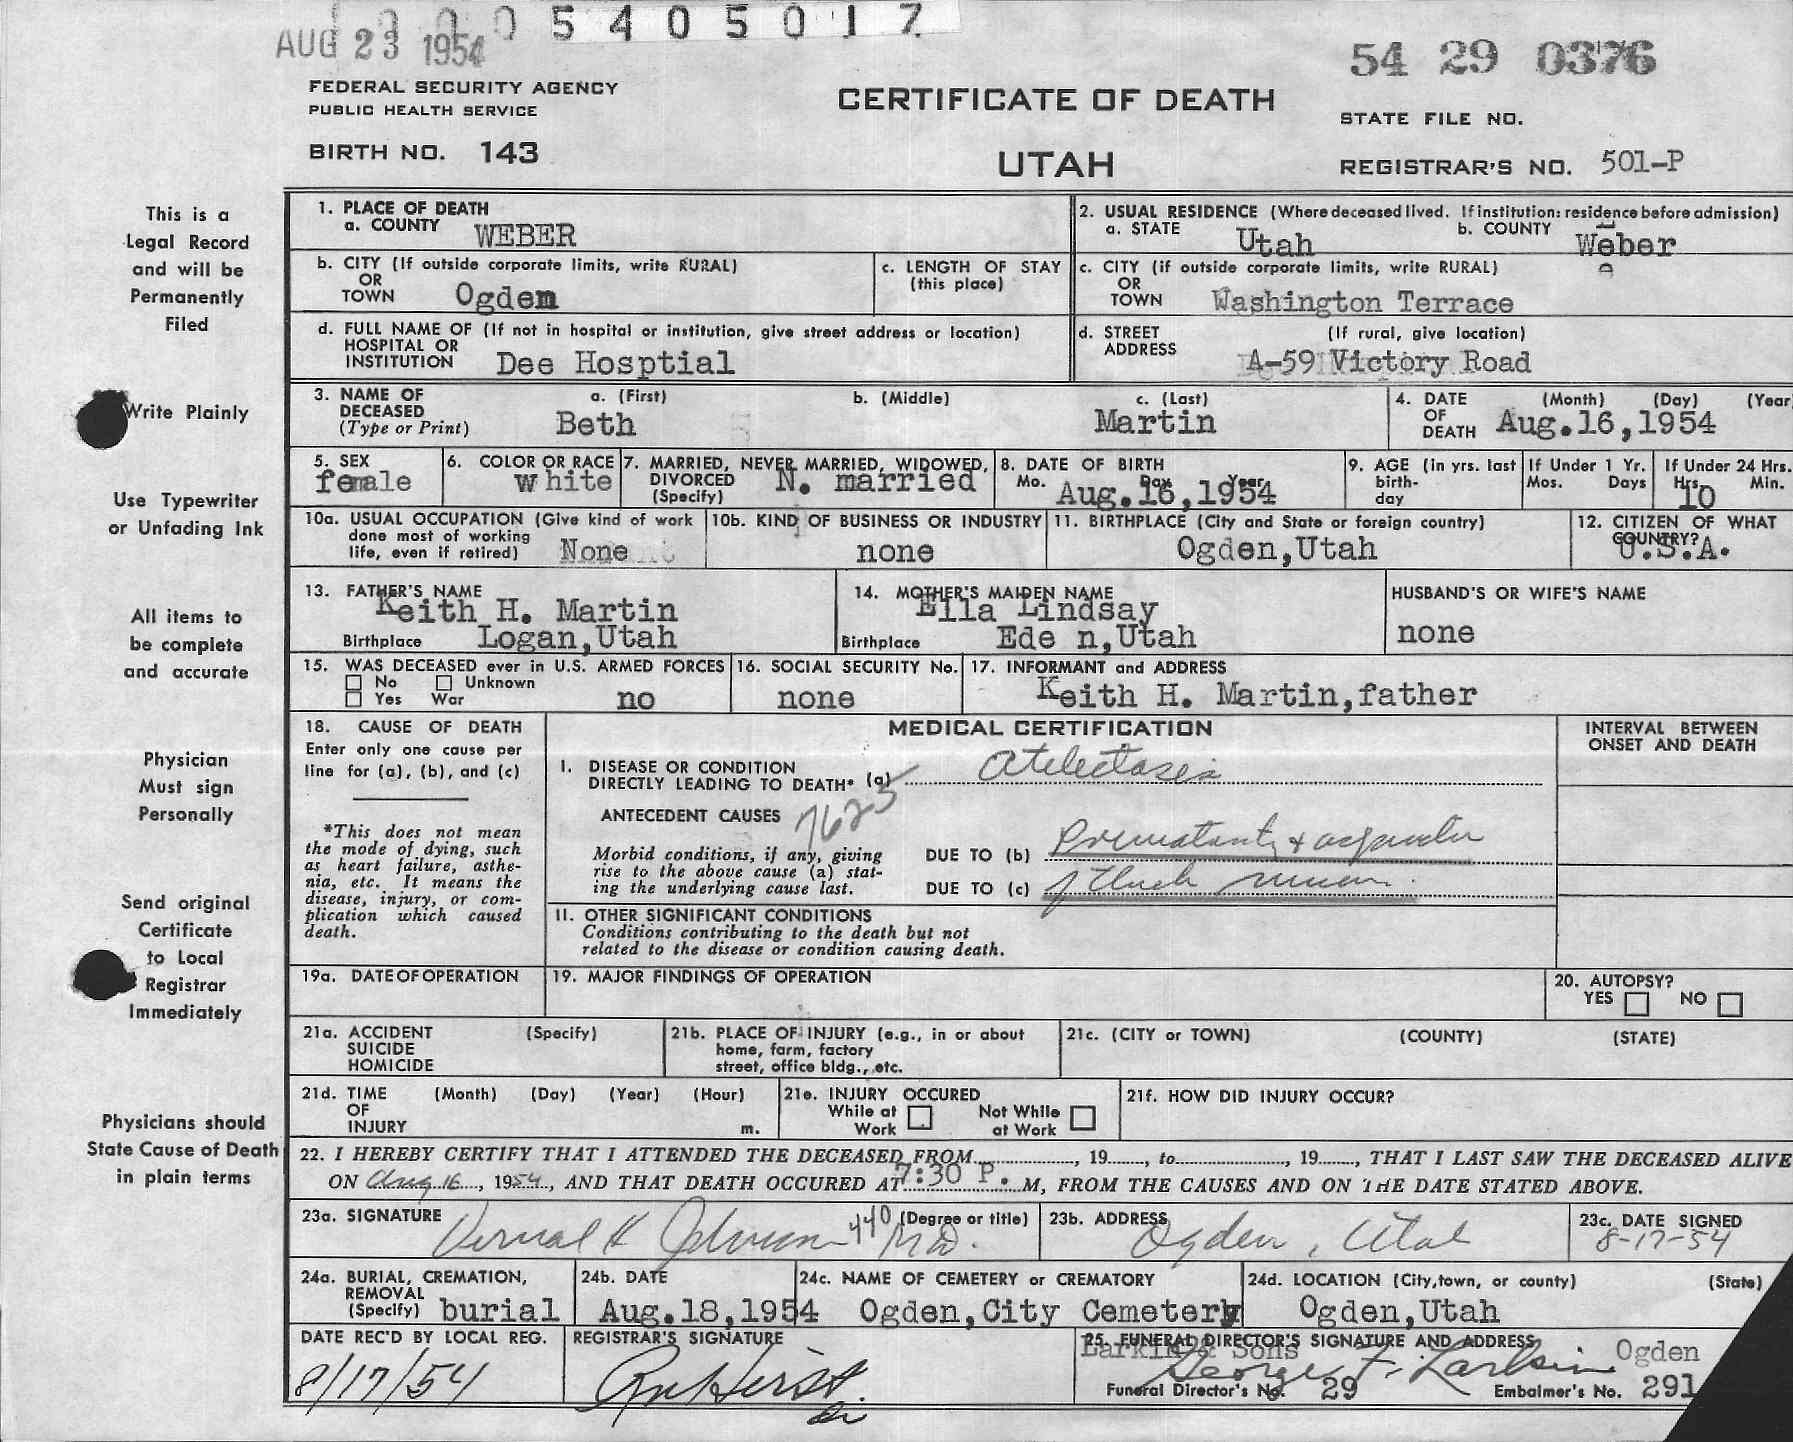 0 5 4 0 5 0 1 7
AUG 23 1954
54 29 0376
FEDERAL SECURITY AGENCY
PUBLIC HEALTH SERVICE
CERTIFICATE OF DEATH
STATE FILE NO.
BIRTH NO. 143
UTAH
REGISTRAR'S NO. 501-P
This is a
Legal Record
and will be
Permanently
Filed
Write Plainly
Use Typewriter
or Unfading Ink
All items to
be complete
and accurate
Physician
Must sign
Personally
Send original
Certificate
to Local
Registrar
Immediately
Physicians should
State Cause of Death
in plain terms
1. PLACE OF DEATH
a. COUNTY WEBER
2. USUAL RESIDENCE (Where deceased lived. If institution: residence before admission)
a. STATE Utah b. COUNTY Weber
b. CITY (If outside corporate limits, write RURAL)
OR
TOWN Ogden
c. LENGTH OF STAY
(this place)
c. CITY (if outside corporate limits, write RURAL)
OR
TOWN Washington Terrace
d. FULL NAME OF (If not in hospital or institution, give street address or location)
HOSPITAL OR
INSTITUTION Dee Hosptial
d. STREET (If rural, give location)
ADDRESS A-59 Victory Road
3. NAME OF
DECEASED
(Type or Print)
a. (First) b. (Middle) c. (Last)
Beth Martin
4. DATE (Month) (Day) (Year)
OF
DEATH Aug.16,1954
5. SEX
female
6. COLOR OR RACE
white
7. MARRIED, NEVER MARRIED, WIDOWED,
DIVORCED
(Specify) N. married
8. DATE OF BIRTH
Mo. Day Year
Aug.16,1954
9. AGE (in yrs. last
birth-
day
If Under 1 Yr.
Mos. Days
If Under 24 Hrs.
Hrs. Min.
10
10a. USUAL OCCUPATION (Give kind of work
done most of working
life, even if retired) None
10b. KIND OF BUSINESS OR INDUSTRY
none
11. BIRTHPLACE (City and State or foreign country)
Ogden,Utah
12. CITIZEN OF WHAT
COUNTRY?
U.S.A.
13. FATHER'S NAME
Keith H. Martin
Birthplace Logan,Utah
14. MOTHER'S MAIDEN NAME
Ella Lindsay
Birthplace Ede n,Utah
HUSBAND'S OR WIFE'S NAME
none
15. WAS DECEASED ever in U.S. ARMED FORCES
No Unknown
Yes War no
16. SOCIAL SECURITY No.
none
17. INFORMANT and ADDRESS
Keith H. Martin,father
18. CAUSE OF DEATH
Enter only one cause per
line for (a), (b), and (c)
*This does not mean
the mode of dying, such
as heart failure, asthe-
nia, etc. It means the
disease, injury, or com-
plication which caused
death.
MEDICAL CERTIFICATION
INTERVAL BETWEEN
ONSET AND DEATH
I. DISEASE OR CONDITION
DIRECTLY LEADING TO DEATH* (a) Atelectasis
ANTECEDENT CAUSES 7625
Morbid conditions, if any, giving
rise to the above cause (a) stat-
ing the underlying cause last.
DUE TO (b) Prematurity +
DUE TO (c)
II. OTHER SIGNIFICANT CONDITIONS
Conditions contributing to the death but not
related to the disease or condition causing death.
19a. DATE OF OPERATION
19. MAJOR FINDINGS OF OPERATION
20. AUTOPSY?
YES NO
21a. ACCIDENT (Specify)
SUICIDE
HOMICIDE
21b. PLACE OF INJURY (e.g., in or about
home, farm, factory
street, office bldg., etc.
21c. (CITY or TOWN) (COUNTY) (STATE)
21d. TIME (Month) (Day) (Year) (Hour)
OF
INJURY m.
21e. INJURY OCCURED
While at Not While
Work at Work
21f. HOW DID INJURY OCCUR?
22. I HEREBY CERTIFY THAT I ATTENDED THE DECEASED FROM ..., 19..., to ..., 19..., THAT I LAST SAW THE DECEASED ALIVE
ON Aug 16, 1954, AND THAT DEATH OCCURED AT 7:30 P. M, FROM THE CAUSES AND ON THE DATE STATED ABOVE.
23a. SIGNATURE (Degree or title)
Vernal H Johnson 440 M.D.
23b. ADDRESS
Ogden, Utah
23c. DATE SIGNED
8-17-54
24a. BURIAL, CREMATION,
REMOVAL
(Specify) burial
24b. DATE
Aug.18,1954
24c. NAME OF CEMETERY or CREMATORY
Ogden,City Cemetery
24d. LOCATION (City,town, or county) (State)
Ogden,Utah
DATE REC'D BY LOCAL REG.
8/17/54
REGISTRAR'S SIGNATURE
25. FUNERAL DIRECTOR'S SIGNATURE AND ADDRESS
Larkin & Sons George F. Larkin Ogden
Funeral Director's No. 29 Embalmer's No. 291